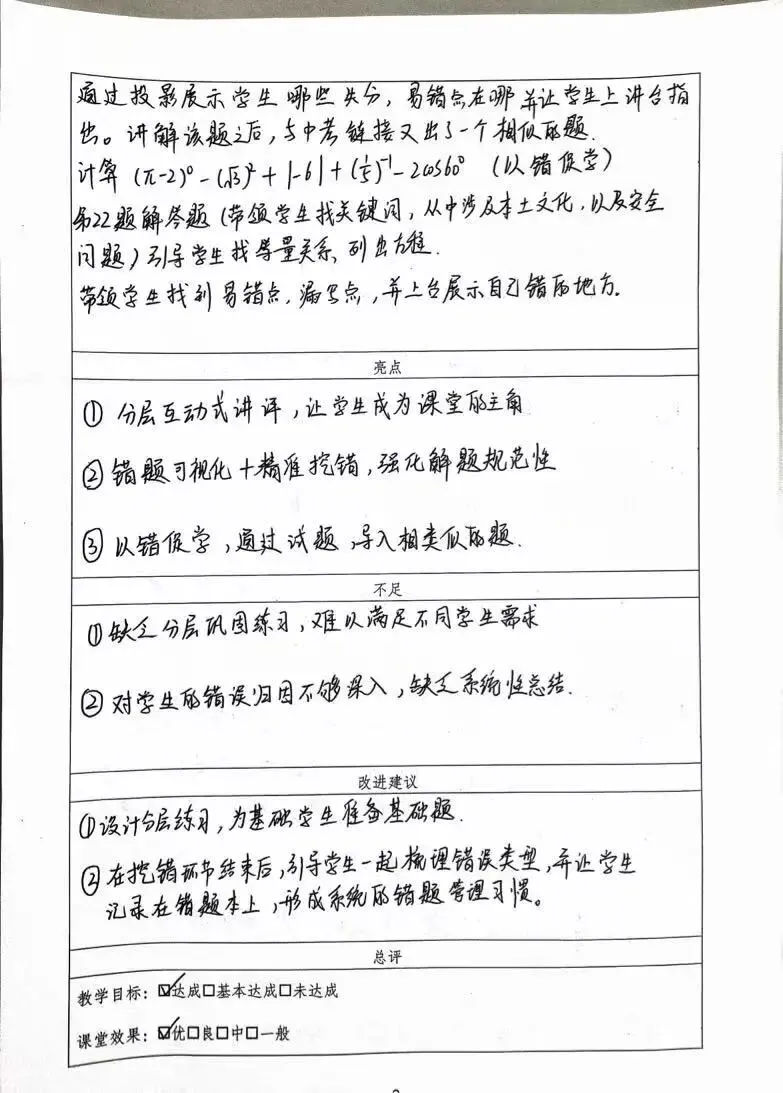 通过投影展示学生哪些失分，易错点在哪并让学生上讲台指
出。讲解该题之后，与中考链接又出了一个相似的题.
计算 (π-2)⁰-(√3)²+|-6|+(1/5)⁻¹-2cos60° (以错促学)
第22题解答题 (带领学生找关键词，从中涉及本土文化，以及安全
问题) 引导学生找等量关系、列出方程.
带领学生找到易错点、漏写点，并上台展示自己错的地方.
亮点
① 分层互动式讲评，让学生成为课堂的主角
② 错题可视化+精准挖错，强化解题规范性
③ 以错促学，通过试题，导入相类似的题.
不足
①缺乏分层巩固练习，难以满足不同学生需求
② 对学生的错误归因不够深入，缺乏系统性总结.
改进建议
①设计分层练习，为基础学生准备基础题.
② 在挖错环节结束后，引导学生一起梳理错误类型，并让学生
记录在错题本上，形成系统的错题管理习惯。
总评
教学目标：☑达成□基本达成□未达成
课堂效果：☑优□良□中□一般